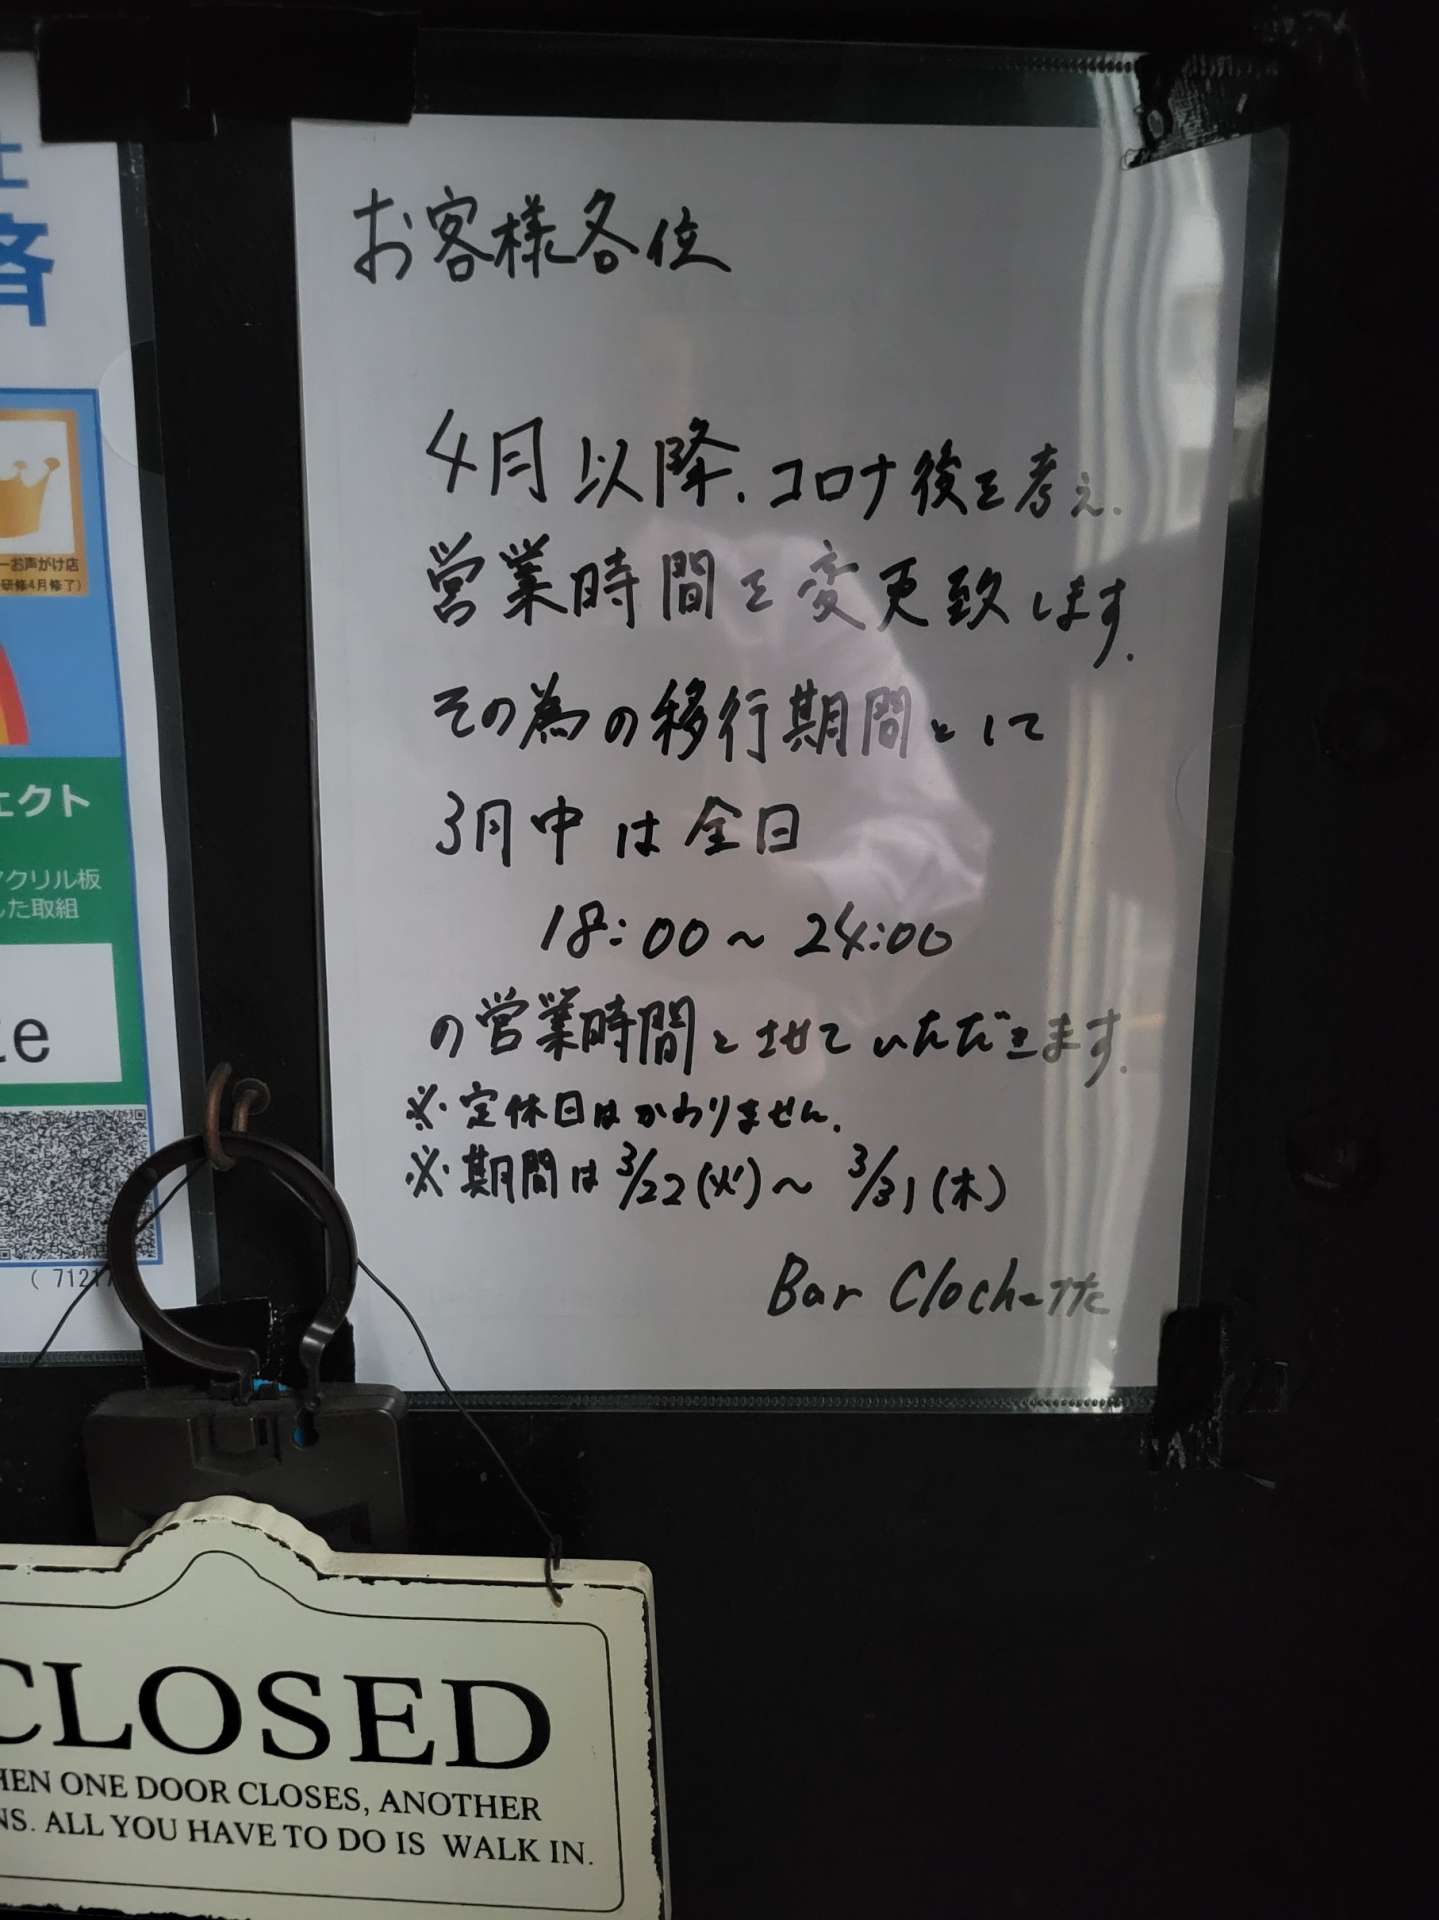 お客様各位
4月以降、コロナ後を考え、
営業時間を変更致します。
その為の移行期間として
3月中は全日
18:00〜24:00
の営業時間とさせていただきます。
※定休日はかわりません。
※期間は3/22(火)〜3/31(木)
Bar Clochette
済
ーお声がけ店
研修4月修了)
ェクト
アクリル板
した取組
te
( 7121
CLOSED
HEN ONE DOOR CLOSES, ANOTHER
NS. ALL YOU HAVE TO DO IS WALK IN.